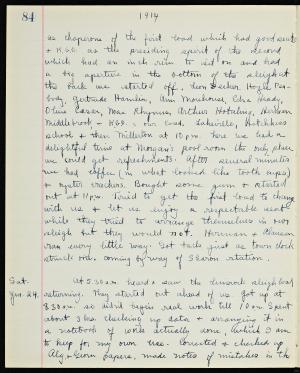 84 1914
as chaperone of the first load which had good seats
+ R.G.G. as the presiding spirit of the second
which had an inch rim to sit on and had
a big aperture in the bottom of the sleigh at
the back. We started off, Leon Decker, Hoyt Pea-
body, Gertrude Hamlin, Ann Morehouse, Edna Heady,
Olive Carter, Max Rhynus, Arthur Hotaling, Herman
Middlebrook, + R.G.G. in our load. Lakeville, Hotchkiss
school + then Millerton at 10 p.m. Here we had a
delightful time at Morgan's pool room the only place
we could get refreshments. After several minutes
we had coffee (in what looked like tooth cups)
+ oyster crackers. Bought some gum + started
out at 11 p.m. Tried to get the first load to change
with us + let us enjoy a respectable seat
while they tried to arrange themselves in our
sleigh but they would not. Herman +
ran every little way. Got back just as town clock
struck one, coming by way of Sharon station.
Sat. At 5.30 a.m. heard + saw the sleighload
Jan. 24. returning. They started out ahead of us. Got up at
8.30 so didn't begin real work till 10 a.m. Spent
about 3 hrs. checking up data + arranging it in
a notebook of work actually done, which I am
to keep for my own use. Corrected + checked up
Alg. + Geom papers, made notes of mistakes in the